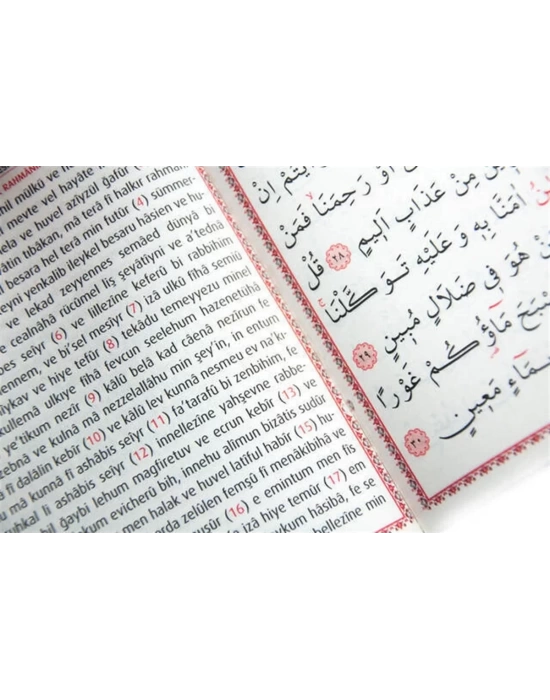 RAHMAN
nil mülkü ve h
l meyte vel hayâte
ela ve huvel azîyzül gafûr
âtin tıbâkan, mâ terâ fî halkır rahmân
l besara hel terâ min futûr (4) sümmer-
eyni yenkalib ileykel besaru hâsien ve hu-
ve lekad zeyyennes semâed dünyâ bi
ve cealnâhâ rücûmel liş şeyâtiyni ve a'tednâ
bes seiyr (6) ve lillezîne keferû bi rabbihim
ennem, ve bi'sel mesiyr (7) izâ ulkû fîhâ semiû
iykav ve hiye tefûr (8) tekâdu temeyyezu minel
kullemâ ulkıye fîhâ fevcun seelehum hazenetühâ
e'tikum nezîr (9) kâlû belâ kad câenâ nezîrun fe
zebnâ ve kulnâ mâ nezzelallâhu min şey'in, in entum
â fî dalâlin kebîr (10) ve kâlû lev kunnâ nesmeu ev na'k-
mâ kunnâ fî ashâbis seiyr (11) fa'tarafû bi zenbihim, fe
uhkal li ashâbis seiyr (12) innellezîne yahşevne rabbe-
bil ğaybi lehum mağfiretuv ve ecrun kebîr (13) ve
kum evicherû bih, innehu alîmun bizâtis sudûr
men halak ve huvel latîful habîr (15) hu-
arda zelûlen femşû fî menâkibihâ ve
nuşûr (16) e emintum men fis
e izâ hiye temûr (17) em
aykum hâsibâ, fe se
bellezîne min
يْتُمْ اِنْ
اَوْ رَحِمَنَا فَمَنْ
مِنْ عَذَابٍ اَلِيمٍ ﴿٢٨﴾ قُلْ
اٰمَنَّا بِهِ وَعَلَيْهِ تَوَكَّلْنَا
مَنْ هُوَ فِي ضَلَالٍ مُبِينٍ ﴿٢٩﴾
صْبَحَ مَاؤُكُمْ غَوْرًا
بِمَاءٍ مَعِينٍ ﴿٣٠﴾